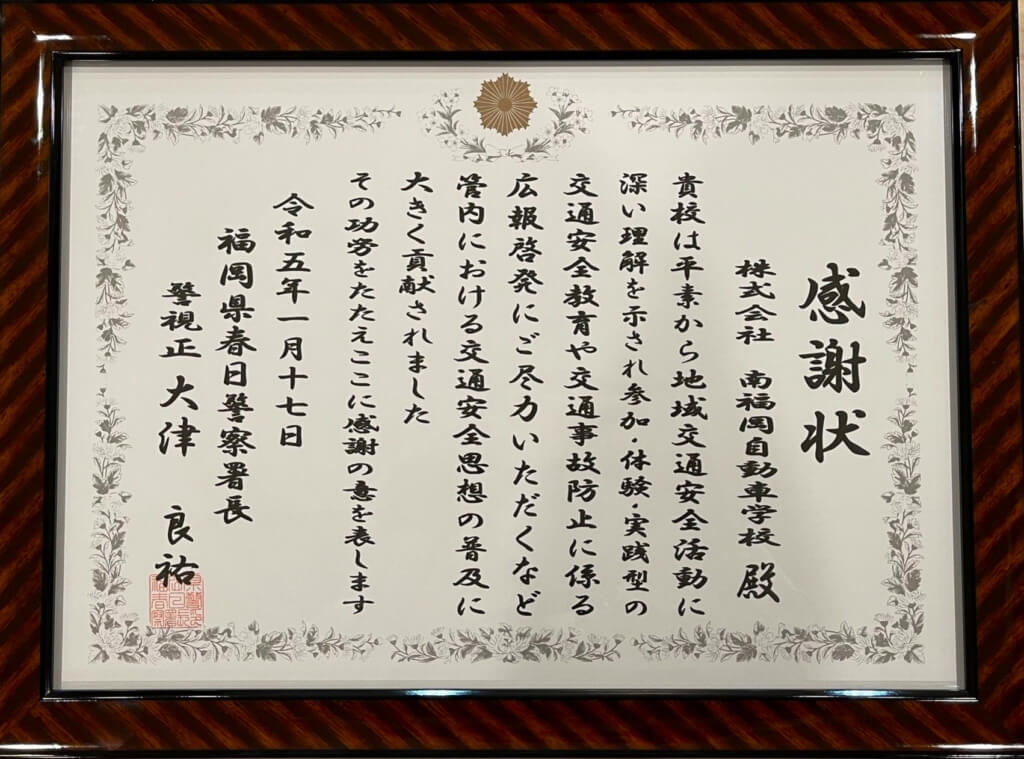 感謝状
株式会社 南福岡自動車学校 殿
貴校は平素から地域交通安全活動に
深い理解を示され参加・体験・実践型の
交通安全教育や交通事故防止に係る
広報啓発にご尽力いただくなど
管内における交通安全思想の普及に
大きく貢献されました
その功労をたたえここに感謝の意を表します
令和五年一月十七日
福岡県春日警察署長
警視正 大津 良祐